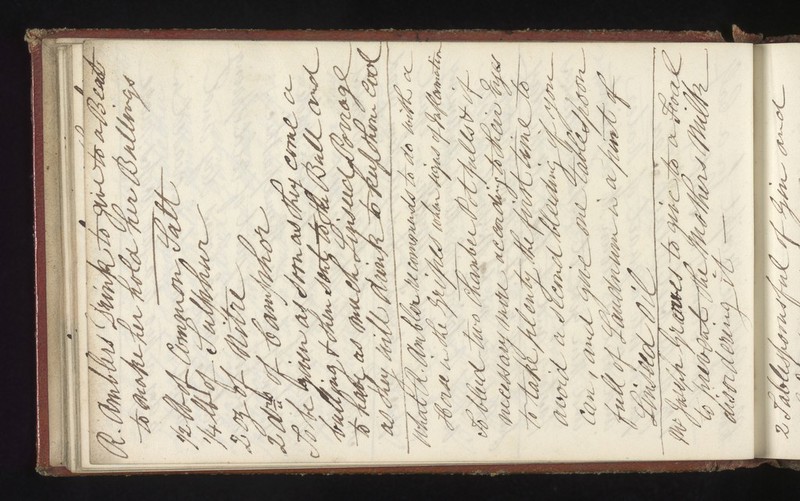 R. Amblers Drink to give to a Beast
to make her hold her Bullings
1/2 lb of Common Salt
1/4 lb of Sulphur
2 oz of Nitre
2 drs of Camphor
To be given as soon as they come a
bulling & then sent to the Bull and
to have as much Linseed Porrage
as they will drink to keep them cool
What R. Ambler recommends to do with a
Horse in the Gripes when signs of Inflamation
To bleed two Chamber Pot fulls & if
necessary more according to their Eyes
To take plenty the first time to
avoid a second bleeding if you
can, and give one tablespoon
full of Laudanum in a pint of
Linseed Oil
Mr Graves to give to a Foal
to prevent the Mothers Milk
disordering it —
2 Tablespoonsful of Gin and